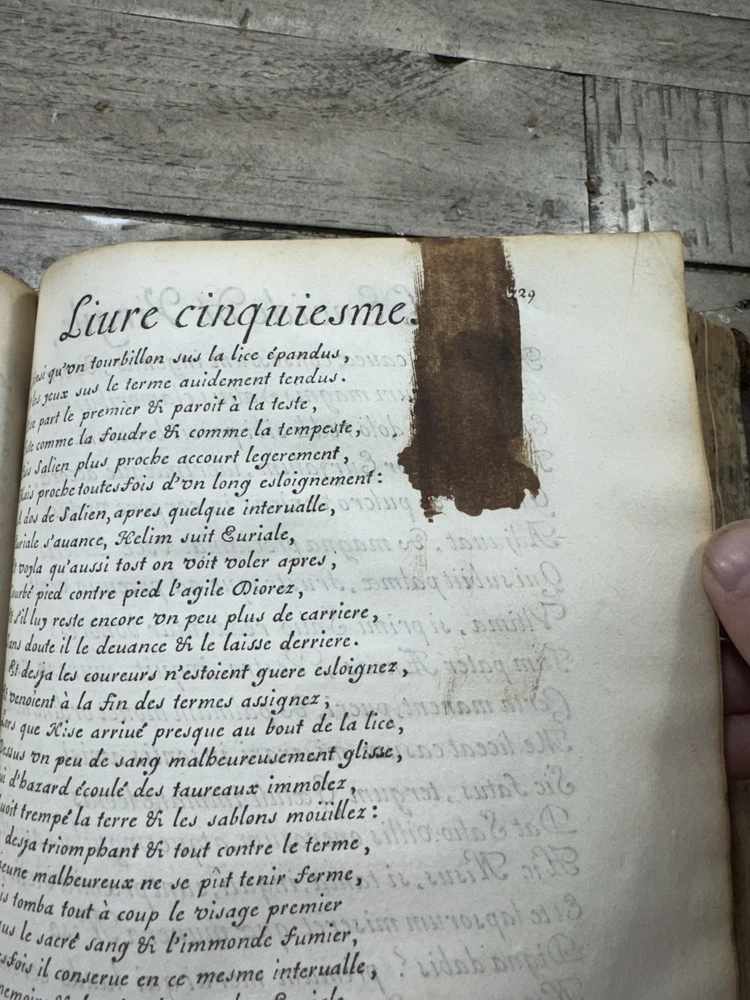 Liure cinquiesme.
729
qu'vn tourbillon sus la lice épandus,
les yeux sus le terme auidement tendus.
part le premier & paroit à la teste,
comme la foudre & comme la tempeste,
Salien plus proche accourt legerement,
Mais proche toutesfois d'vn long esloignement:
dos de Salien, apres quelque interualle,
Euriale s'auance, Helim suit Euriale,
voyla qu'aussi tost on voit voler apres,
Courbé pied contre pied l'agile Diorez,
Et s'il luy reste encore vn peu plus de carriere,
Sans doute il le deuance & le laisse derriere.
Et desja les coureurs n'estoient guere esloignez,
Et venoient à la fin des termes assignez,
Lors que Nise arriué presque au bout de la lice,
Dessus vn peu de sang malheureusement glisse,
d'hazard écoulé des taureaux immolez,
Auoit trempé la terre & les sablons moüillez:
desja triomphant & tout contre le terme,
jeune malheureux ne se pût tenir ferme,
tomba tout à coup le visage premier
le sacré sang & l'immonde fumier,
il conserue en ce mesme interualle,
Euriale